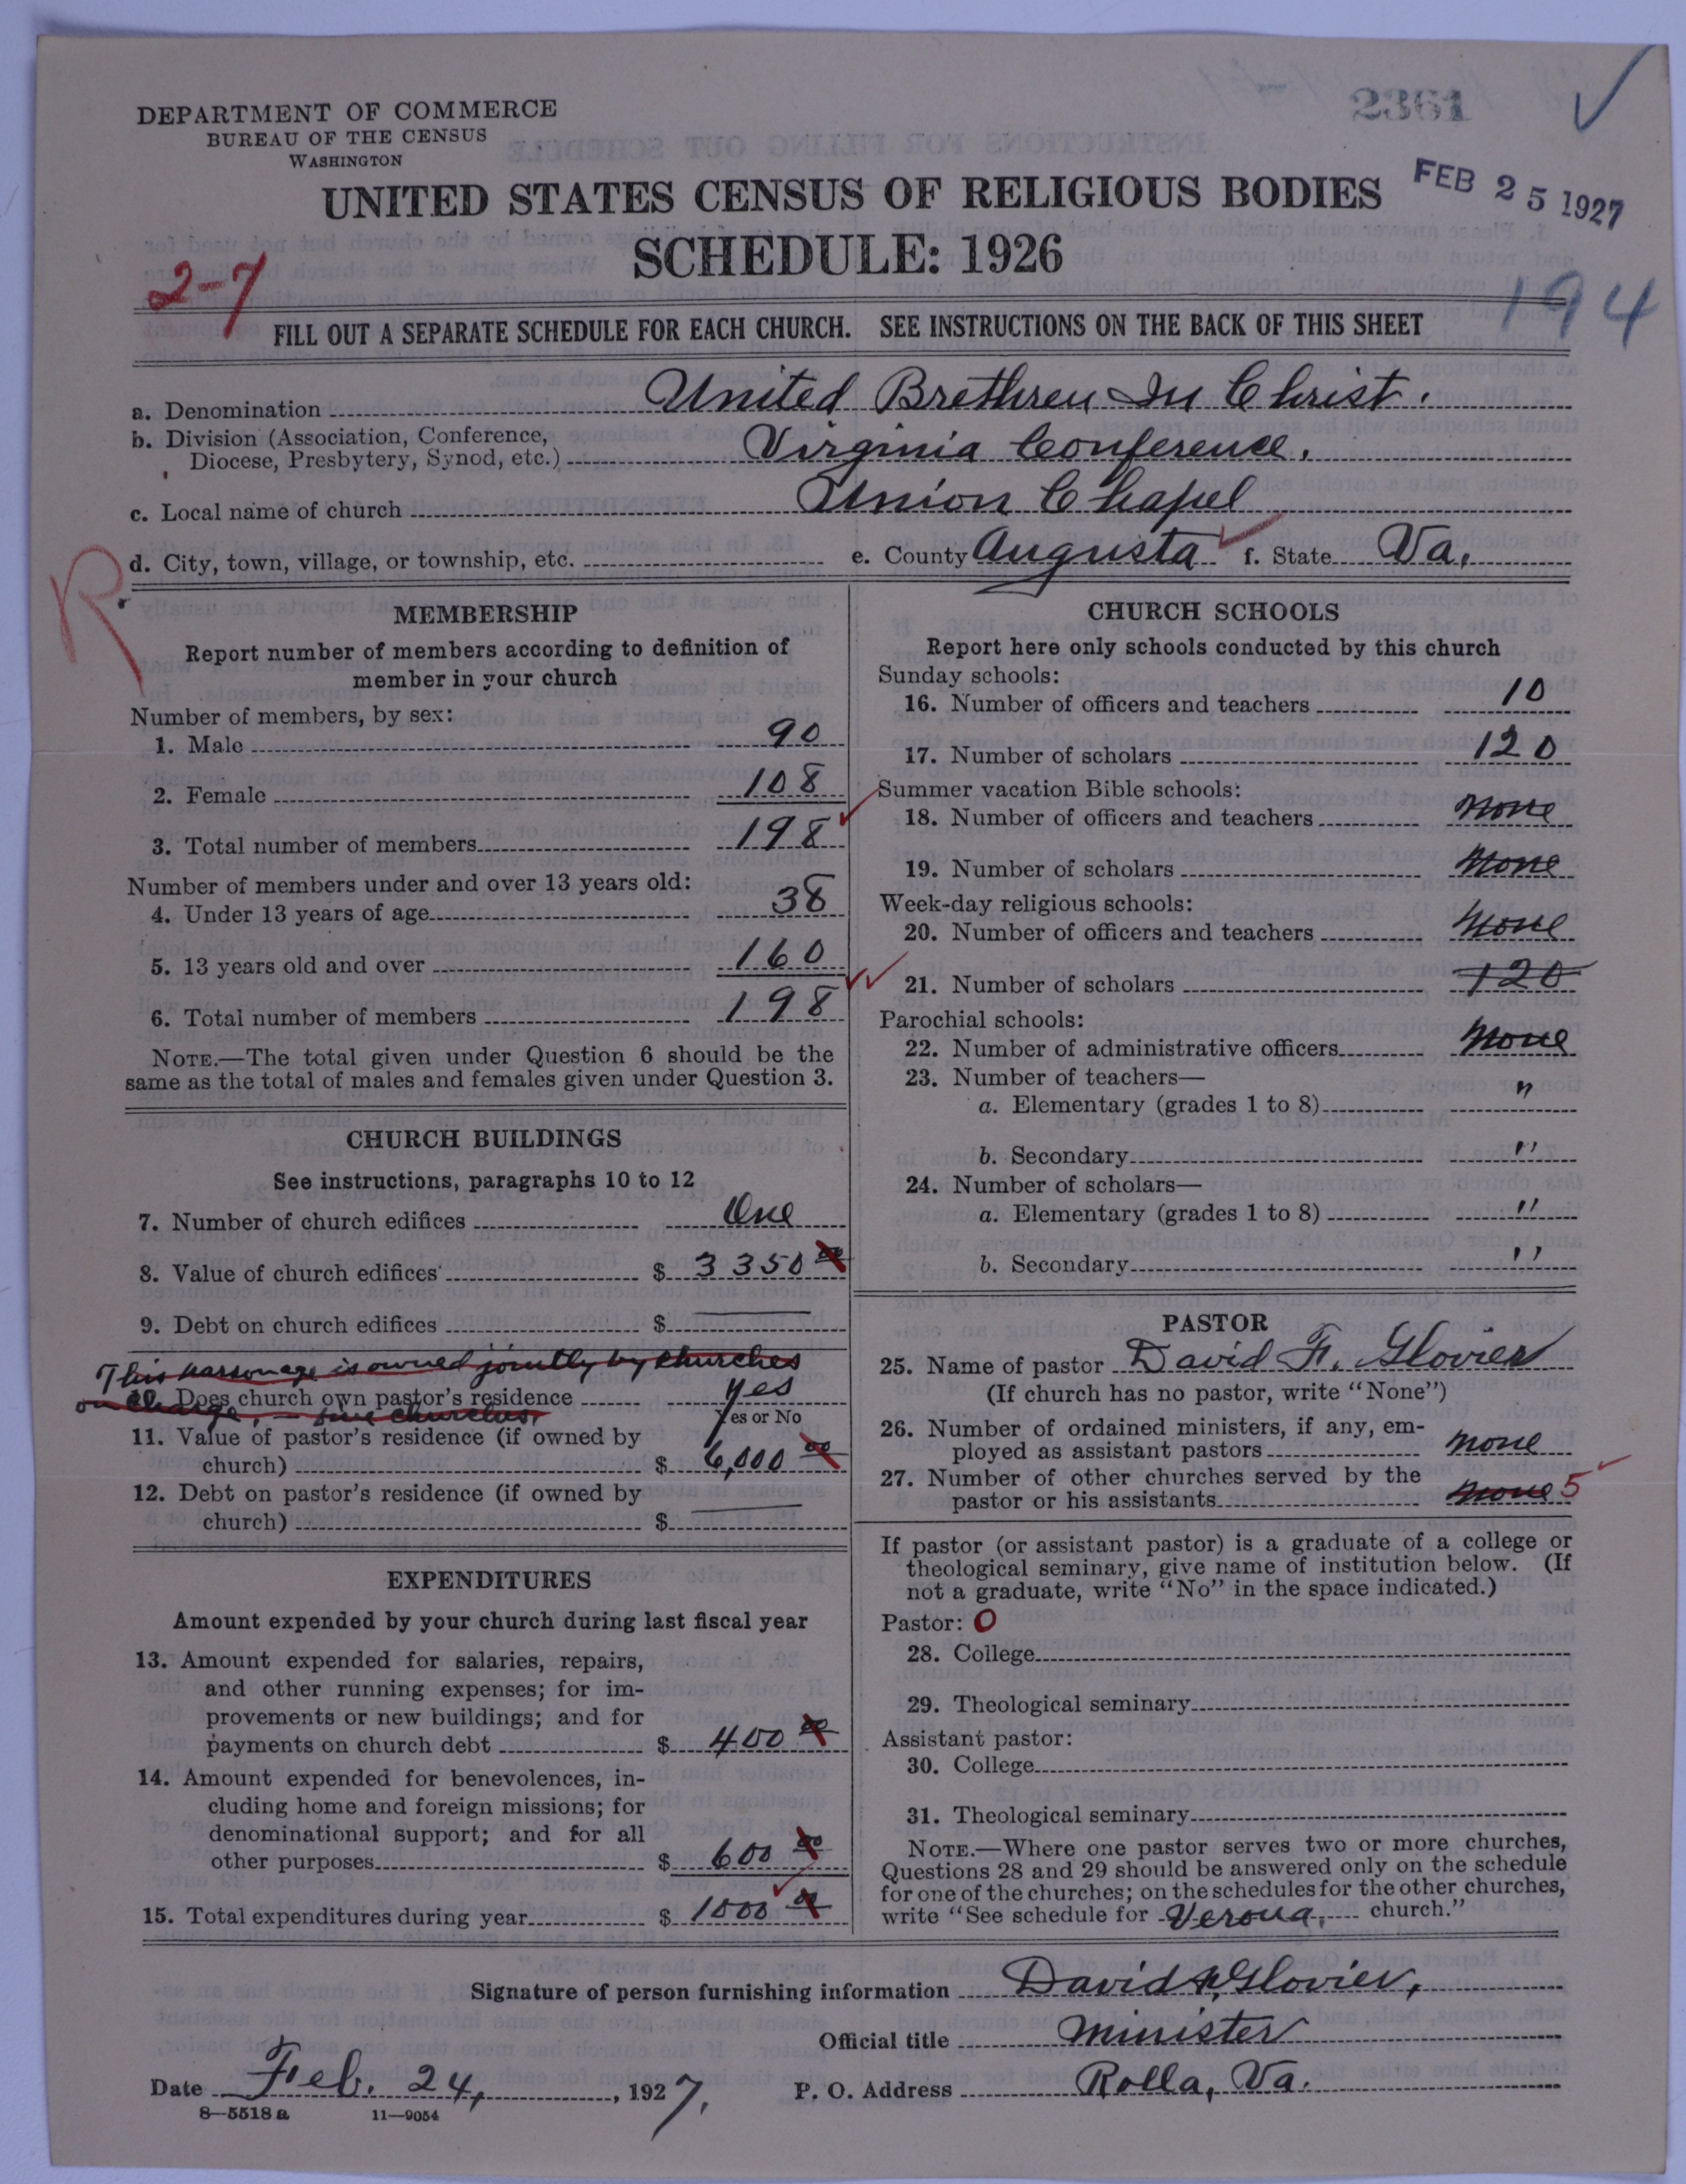 2361
DEPARTMENT OF COMMERCE
BUREAU OF THE CENSUS
WASHINGTON
FEB 25 1927
UNITED STATES CENSUS OF RELIGIOUS BODIES
SCHEDULE: 1926
2-7
194
FILL OUT A SEPARATE SCHEDULE FOR EACH CHURCH. SEE INSTRUCTIONS ON THE BACK OF THIS SHEET
a. Denomination United Brethren In Christ.
b. Division (Association, Conference,
Diocese, Presbytery, Synod, etc.) Virginia Conference.
c. Local name of church Union Chapel
d. City, town, village, or township, etc. e. County Augusta f. State Va.
R
MEMBERSHIP
Report number of members according to definition of
member in your church
Number of members, by sex:
1. Male 90
2. Female 108
3. Total number of members 198
Number of members under and over 13 years old:
4. Under 13 years of age 38
5. 13 years old and over 160
6. Total number of members 198
NOTE.—The total given under Question 6 should be the
same as the total of males and females given under Question 3.
CHURCH BUILDINGS
See instructions, paragraphs 10 to 12
7. Number of church edifices One
8. Value of church edifices $ 3350 00
9. Debt on church edifices $
This parsonage is owned jointly by churches
10. Does church own pastor's residence Yes
on charge, — five churches.
Yes or No
11. Value of pastor's residence (if owned by
church) $ 6,000 00
12. Debt on pastor's residence (if owned by
church) $
EXPENDITURES
Amount expended by your church during last fiscal year
13. Amount expended for salaries, repairs,
and other running expenses; for im-
provements or new buildings; and for
payments on church debt $ 400 00
14. Amount expended for benevolences, in-
cluding home and foreign missions; for
denominational support; and for all
other purposes $ 600 00
15. Total expenditures during year $ 1000 00
CHURCH SCHOOLS
Report here only schools conducted by this church
Sunday schools:
16. Number of officers and teachers 10
17. Number of scholars 120
Summer vacation Bible schools:
18. Number of officers and teachers None
19. Number of scholars None
Week-day religious schools:
20. Number of officers and teachers None
21. Number of scholars 120
Parochial schools:
22. Number of administrative officers None
23. Number of teachers—
a. Elementary (grades 1 to 8) "
b. Secondary "
24. Number of scholars—
a. Elementary (grades 1 to 8) "
b. Secondary "
PASTOR
25. Name of pastor David F. Glovier
(If church has no pastor, write "None")
26. Number of ordained ministers, if any, em-
ployed as assistant pastors None
27. Number of other churches served by the
pastor or his assistants None 5
If pastor (or assistant pastor) is a graduate of a college or
theological seminary, give name of institution below. (If
not a graduate, write "No" in the space indicated.)
Pastor: O
28. College
29. Theological seminary
Assistant pastor:
30. College
31. Theological seminary
NOTE.—Where one pastor serves two or more churches,
Questions 28 and 29 should be answered only on the schedule
for one of the churches; on the schedules for the other churches,
write "See schedule for Verona, church."
Signature of person furnishing information David F. Glovier,
Official title Minister
Date Feb. 24, 1927. P. O. Address Rolla, Va.
8—5518 a 11—9054